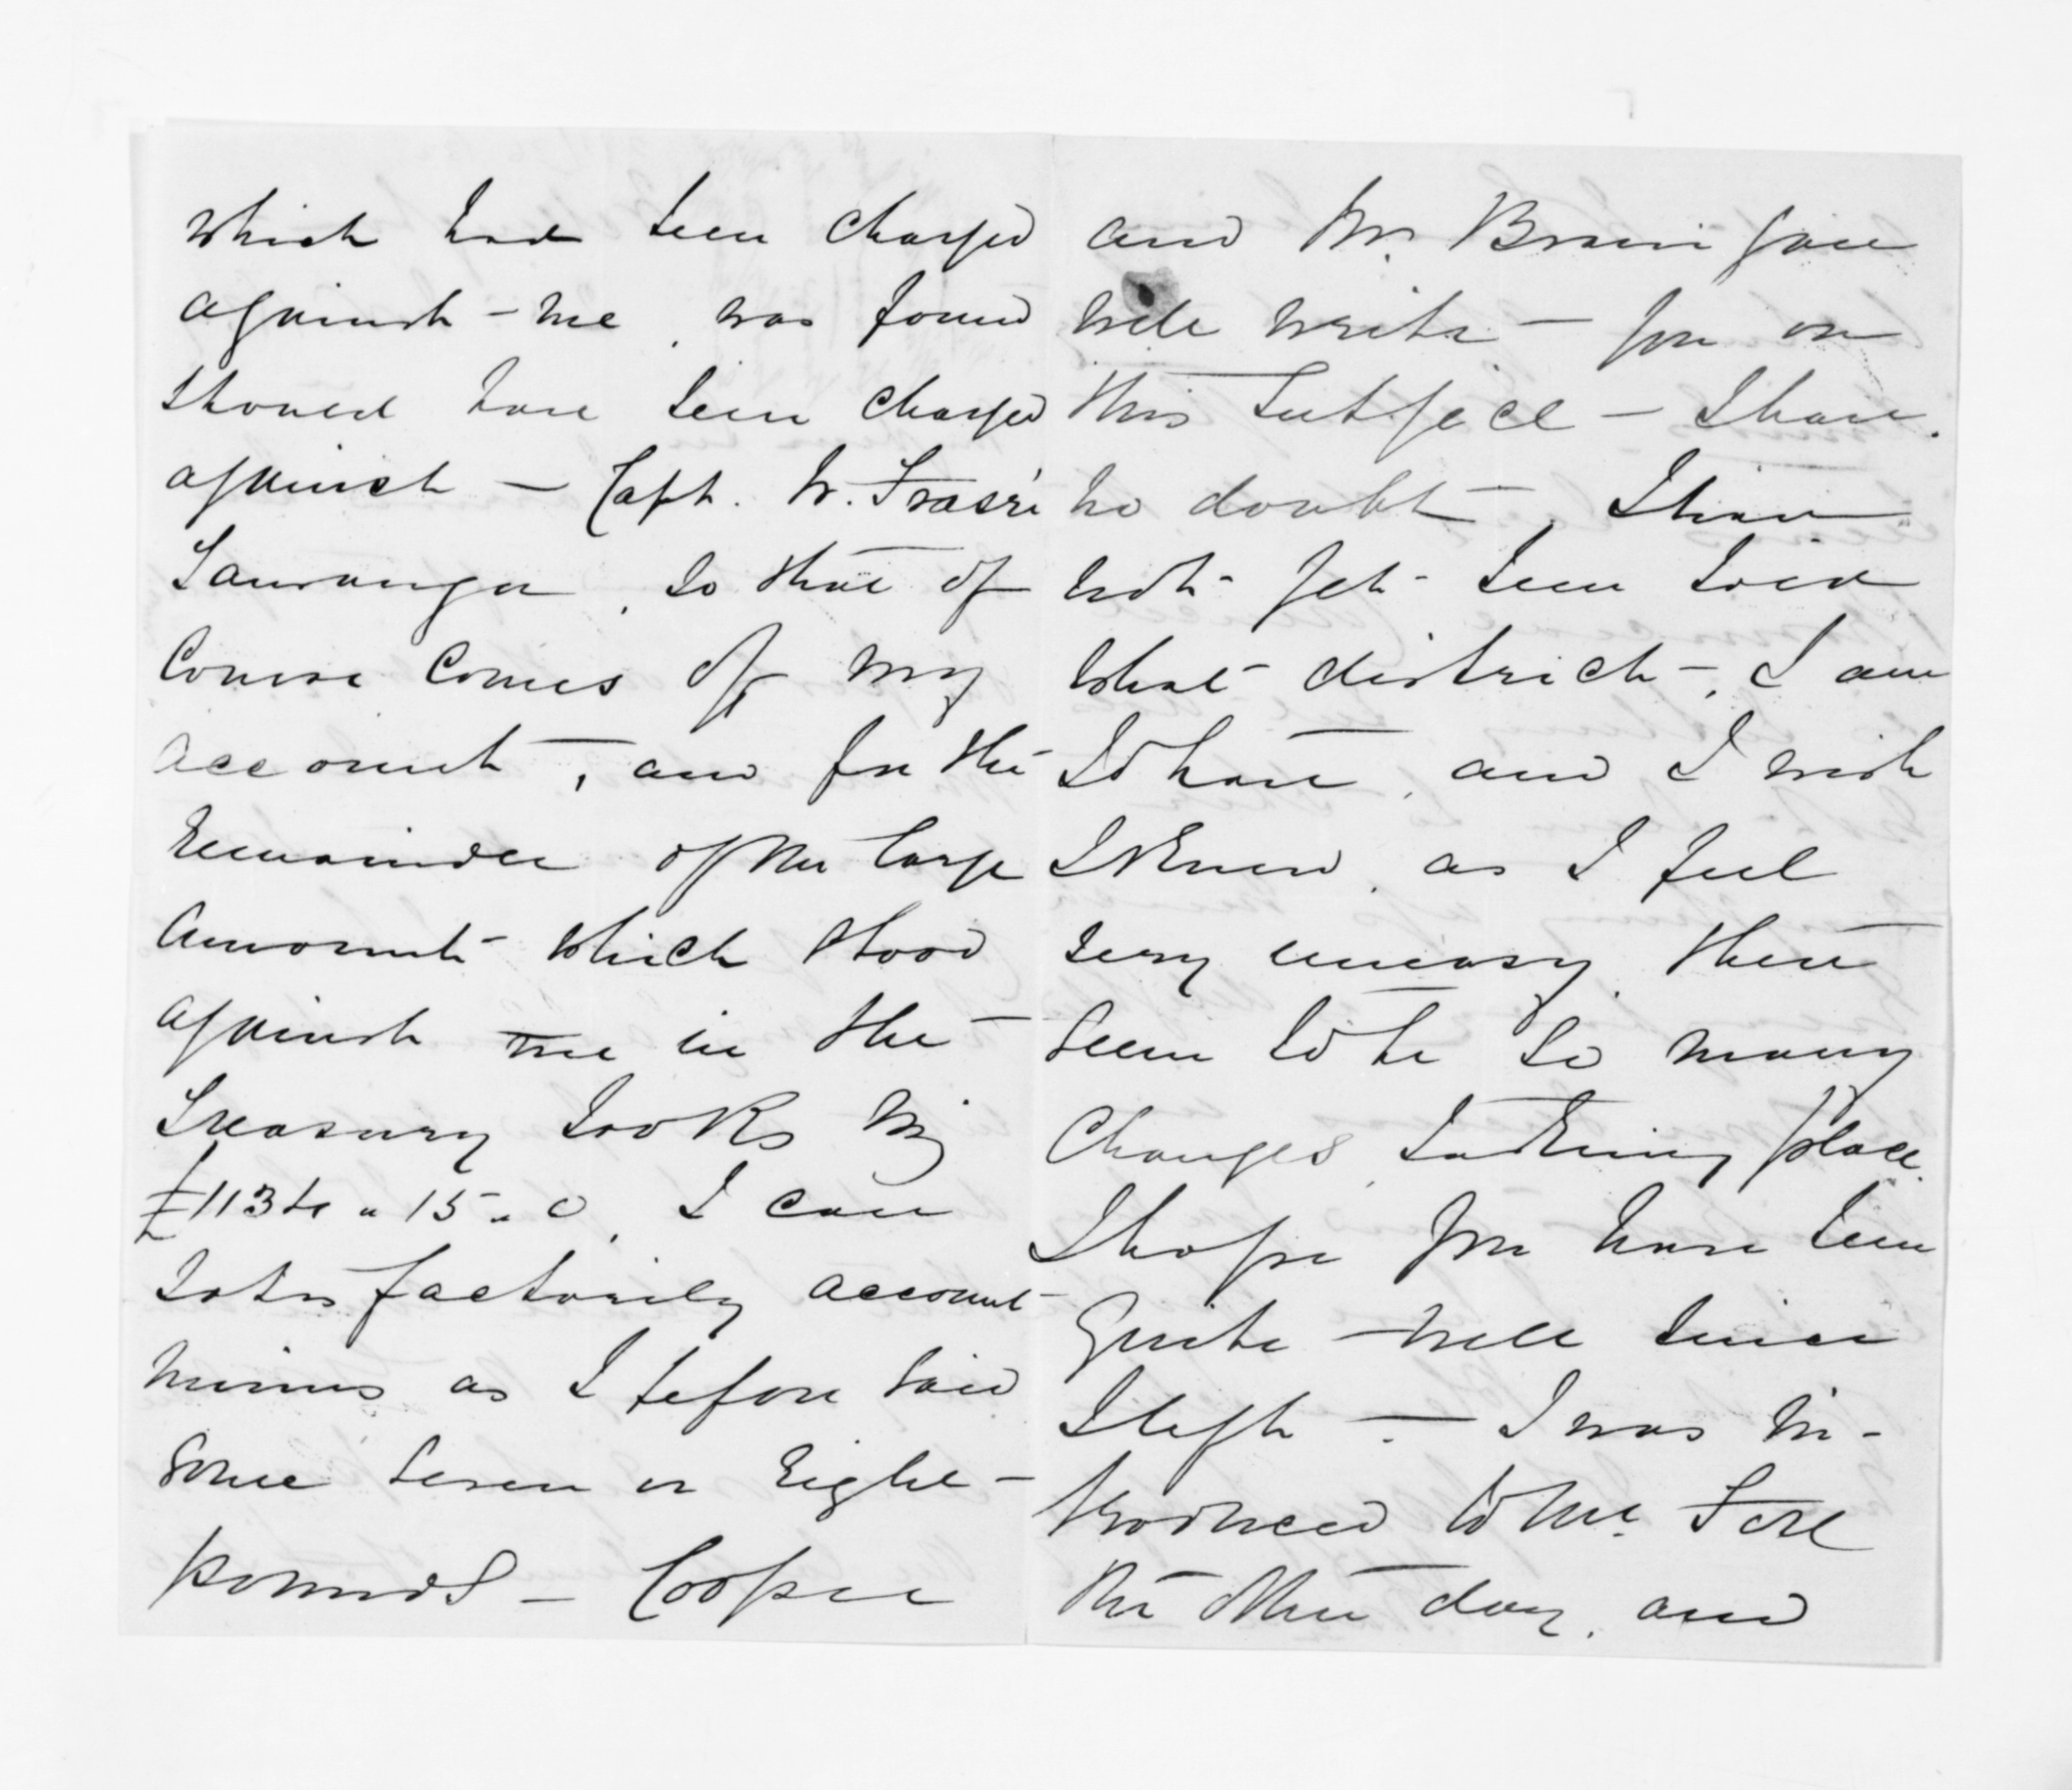 which had been charged
against me, was found
should have been charged
against - Capt. W. Fraser
Tauranga, so that of
course comes off my
account, and for the
remainder of the large
amount which stood
against me in the
Treasury books viz
£1134 " 15 " 0, I can
satisfactorily account
minus as I before said
some seven or eight
pounds - Cooper
and Mr.
will write you on
this subject - I have
no doubt, I have
not yet been told
what district, I am
to have, and I wish
I knew, as I feel
very uneasy, there
seem to be so many
changes taking place.
I hope you have been
quite well since
I left - I was in-
troduced to Mr. Fox
the other day, and